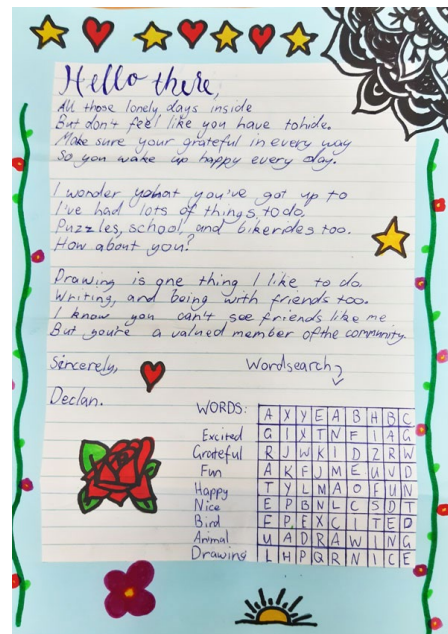 Hello there,
All those lonely days inside
But don't feel like you have to hide.
Make sure your grateful in every way
So you wake up happy every day.
I wonder what you've got up to
I've had lots of things to do.
Puzzles, school, and bikerides too.
How about you?
Drawing is one thing I like to do.
Writing, and being with friends too.
I know you can't see friends like me
But you're a valued member of the community.
Sincerely,
Declan.
Wordsearch
WORDS:
Excited
Grateful
Fun
Happy
Nice
Bird
Animal
Drawing
A X Y E A B H B C
G I X T N F I A G
R J W K I D Z R W
A K F J M E U V D
T Y L M A O F U N
E P B N L C S D T
F P E X C I T E D
U A D R A W I N G
L H P Q R N I C E